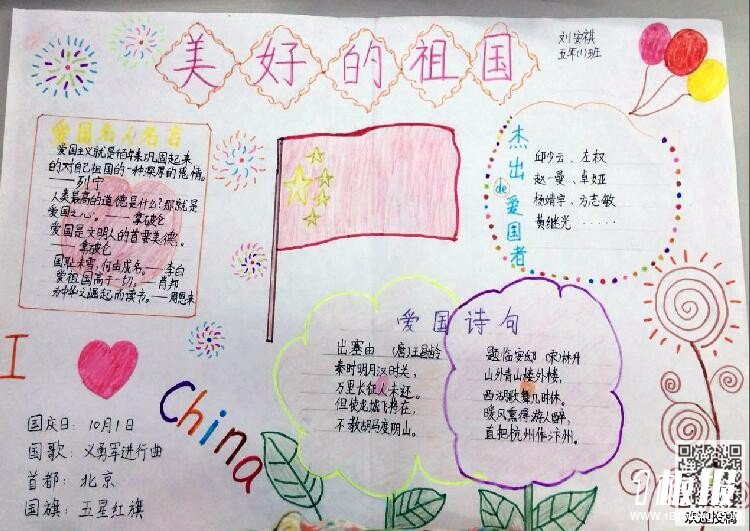 美好的祖国
刘安祺
五年(1)班
爱国名人名言
爱国主义就是千百年来巩固起来
的对自己祖国的一种深厚的感情。
——列宁
人类最高的道德是什么?那就是
爱国之心。——拿破仑
爱国是文明人的首要美德。
——拿破仑
国耻未雪,何由成名。——李白
爱祖国高于一切。——肖邦
为中华之崛起而读书。——周恩来
杰出de爱国者
邱少云、左权
赵一曼、卓娅
杨靖宇、方志敏
黄继光 ······
I
China
国庆日:10月1日
国歌:义勇军进行曲
首都:北京
国旗:五星红旗
爱国诗句
出塞 (唐)王昌龄
秦时明月汉时关,
万里长征人未还。
但使龙城飞将在,
不教胡马度阴山。
题临安邸 (宋)林升
山外青山楼外楼,
西湖歌舞几时休。
暖风熏得游人醉,
直把杭州作汴州。